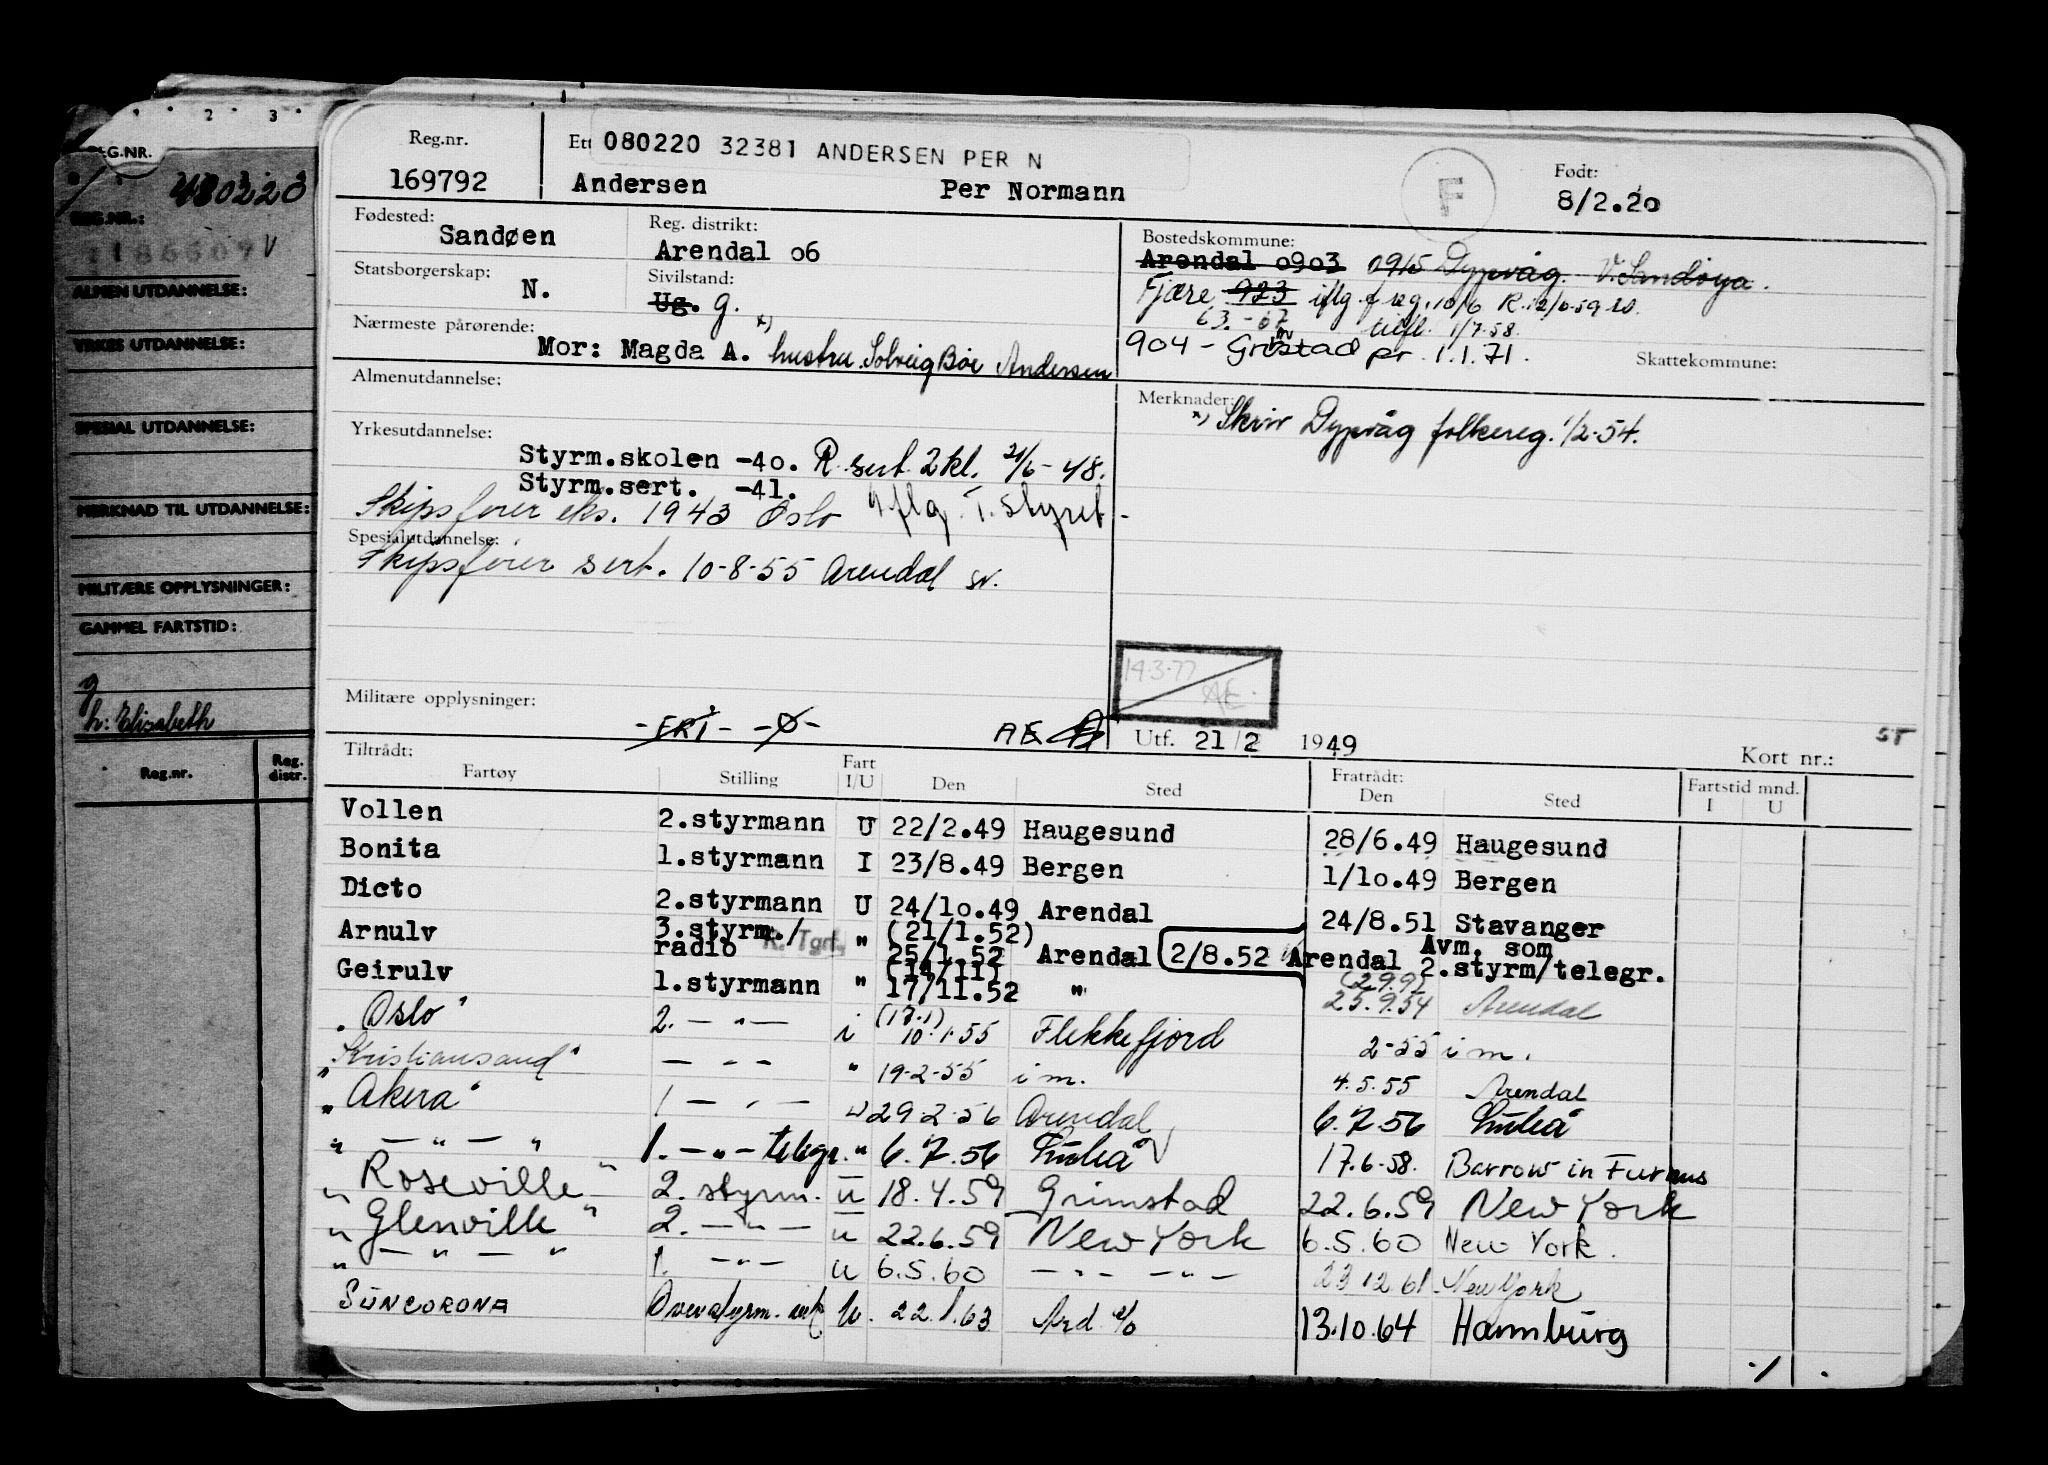 2 3
REG.NR.
480220
REG.NR.:
186609 V
ALMEN UTDANNELSE:
YRKES UTDANNELSE:
SPESIAL UTDANNELSE:
MERKNAD TIL UTDANNELSE:
MILITÆRE OPPLYSNINGER:
GAMMEL FARTSTID:
g
h: Elisabeth
Reg.nr. Reg. distr.
Reg.nr. Ett 080220 32381 ANDERSEN PER N
169792 Andersen Per Normann F Født: 8/2.20
Fødested: Sandøen Reg. distrikt: Arendal 06
Bostedskommune:
Arendal 0903 0915 Dypvåg. V. Sandøya.
Statsborgerskap: N. Sivilstand: Ug. g.
Fjære 923 iflg. f reg. 10/6
63.-67 tilfl. 1/7-58.
904 - Grimstad pr. 1.1.71.
Skattekommune:
Nærmeste pårørende: x)
Mor: Magda A. hustru Solveig Bøe Andersen
Almenutdannelse:
Merknader:
x) Skriv Dypvåg folkereg. 1/2-54.
Yrkesutdannelse:
Styrm.skolen -40. R. sert. 2 kl. 21/6-48.
Styrm.sert. -41.
Skipsfører eks. 1943 Oslo iflg. T. styret.
Spesialutdannelse:
Skipsfører sert. 10-8-55 Arendal sv.
14-3-77
AE.
Militære opplysninger:
AE
Utf. 21/2 1949 Kort nr.: ST
Tiltrådt: Fratrådt:
Fartøy Stilling Fart I/U Den Sted Den Sted Fartstid mnd. I U
Vollen 2.styrmann U 22/2.49 Haugesund 28/6.49 Haugesund
Bonita 1.styrmann I 23/8.49 Bergen 1/10.49 Bergen
Dicto 2.styrmann U 24/10.49 Arendal 24/8.51 Stavanger
Arnulv 3.styrm./ radio R. Tgrf. " (21/1.52) 25/1.52 Arendal 2/8.52 Arendal Avm. som 2.styrm/telegr.
Geirulv 1.styrmann " (14/11) 17/11.52 " (29.9) 25.9.54 Arendal
"Oslo" 2. - " - i (13.1) 10.1.55 Flekkefjord 2-55 i m.
"Kristiansand" - " - " 19-2-55 i m. 4.5.55 Arendal
"Akera" 1 - " - u 29-2-56 Arendal 6.7.56 Luleå
" - " - " 1. - " - telegr. " 6.7.56 Luleå 17.6-58. Barrow in Furnus
"Roseville" 2. styrm. u 18.4.59 Grimstad 22.6.59 New York
"Glenville" 2. - " - u 22.6.59 New York 6.5.60 New York.
" - " - " 1. - " - u 6.5.60 - " - - " - 23 12 61 New York
SUNCORONA Overstyrm. u. 22.1.63 Ard. 13.10.64 Hamburg